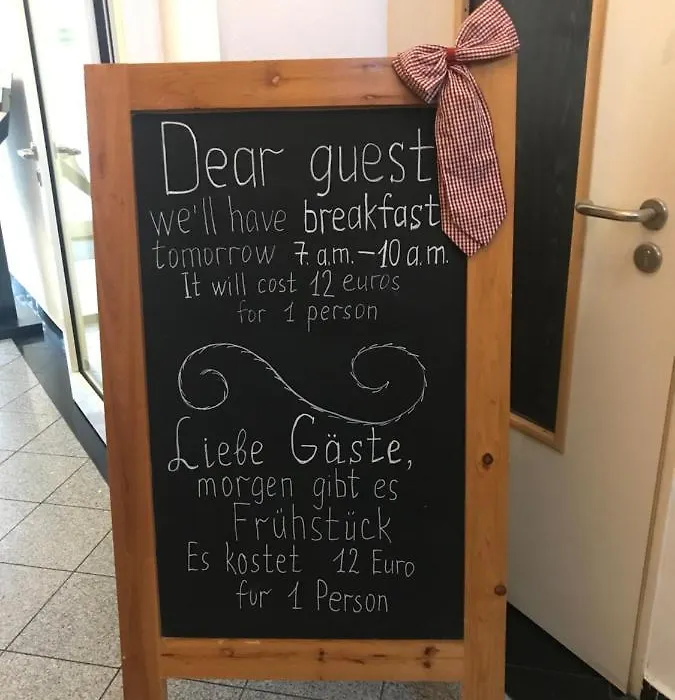 Dear guest
we'll have breakfast
tomorrow 7 a.m. – 10 a.m.
It will cost 12 euros
for 1 person
Liebe Gäste,
morgen gibt es
Frühstück
Es kostet 12 Euro
fur 1 Person